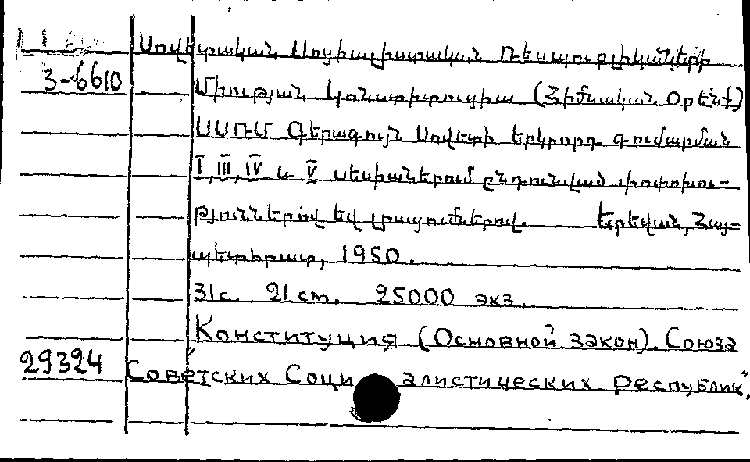 Սովետական Սոցիալիստական Ռեսպուբլիկաների
3-6610 Միության կոնստիտուցիա (Հիմնական օրենք)
ՍՍՌՄ Գերագույն Սովետի երկրորդ գումարման
I, III, IV և V սեսիաներում ընդունված փոփոխու-
թյուններով եվ լրացումներով. Երևան, Հայ-
պետհրատ, 1950.
31 с. 21 см. 25000 экз.
Конституция (Основной закон) Союза
29324 Советских Социалистических республик",